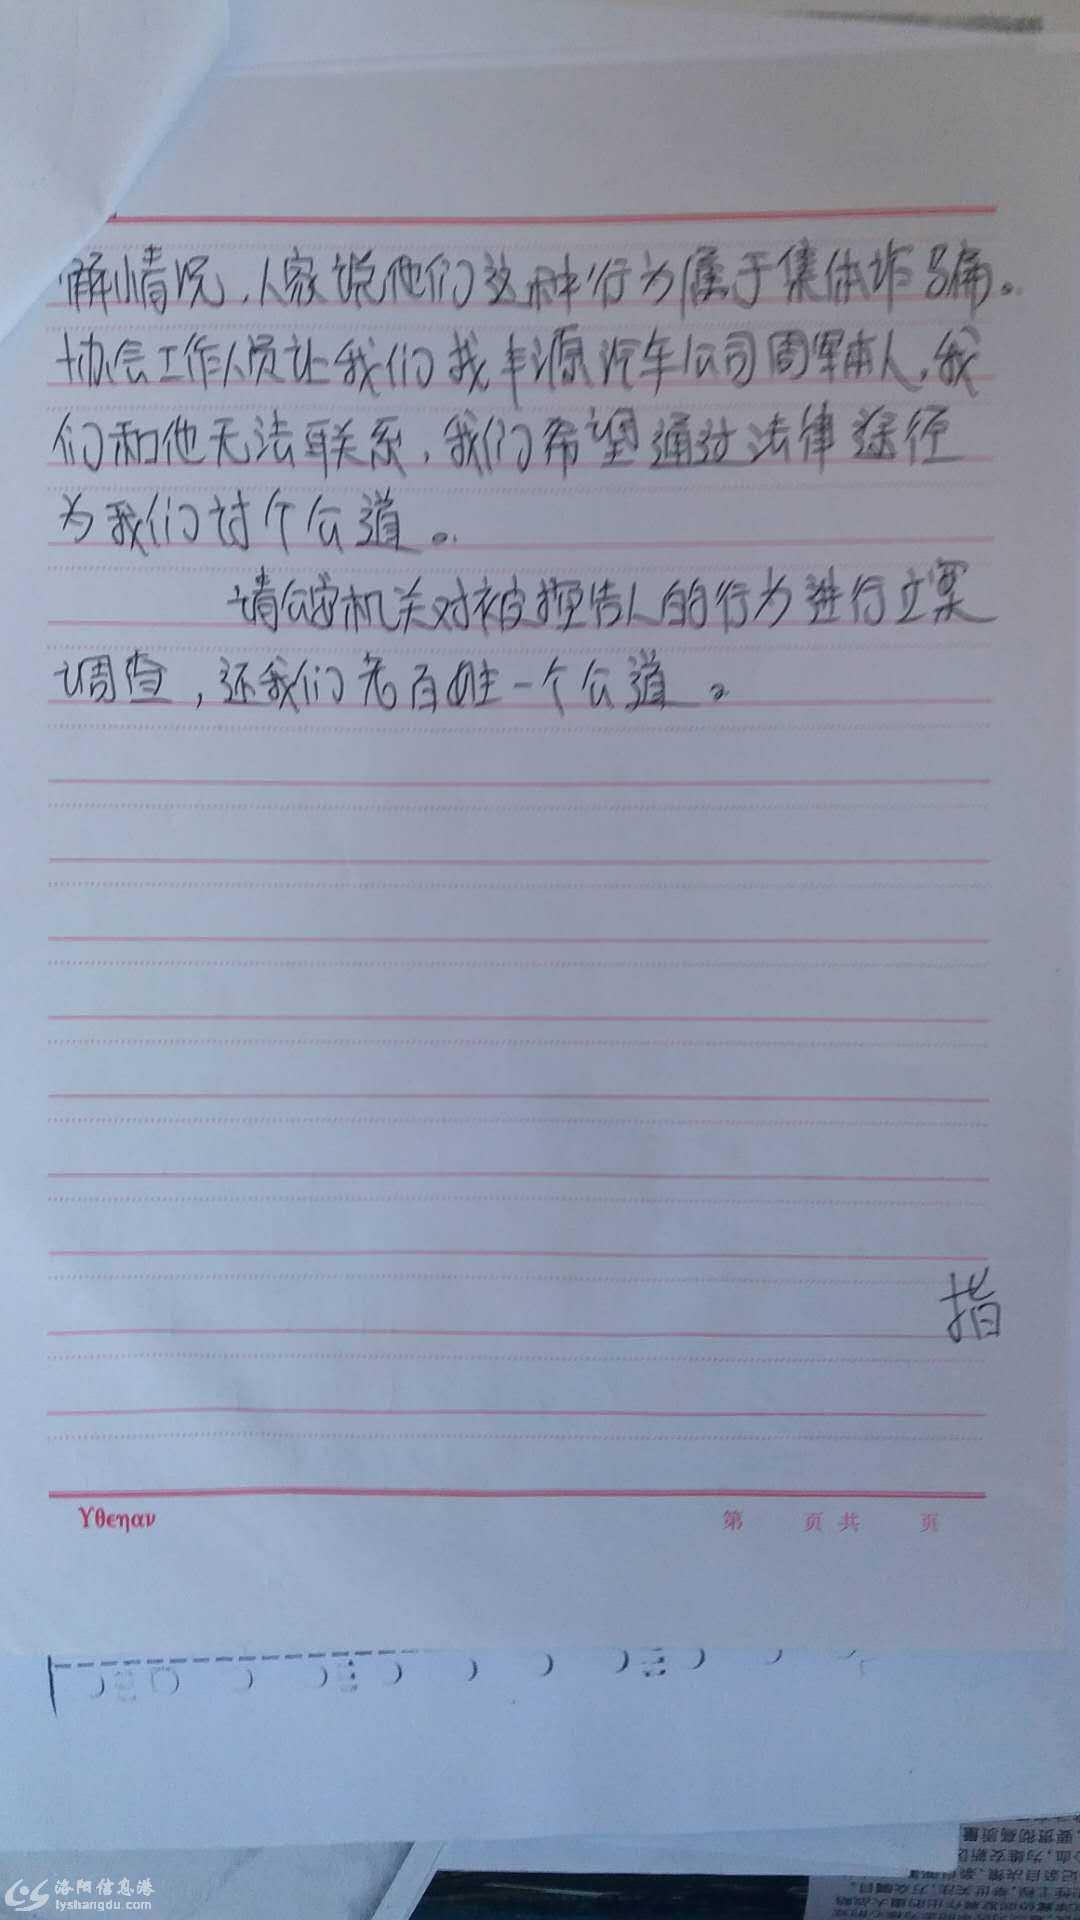 解情况，人家说他们这种行为属于集体诈骗。
协会工作人员让我们找丰源汽车公司周军本人，我
们和他无法联系，我们希望通过法律途径
为我们讨个公道。
请公安机关对被控告人的行为进行立案
调查，还我们老百姓一个公道。
指
Yθεηαν
第 页 共 页
要贯彻高质量
洛阳信息港
lyshangdu.com